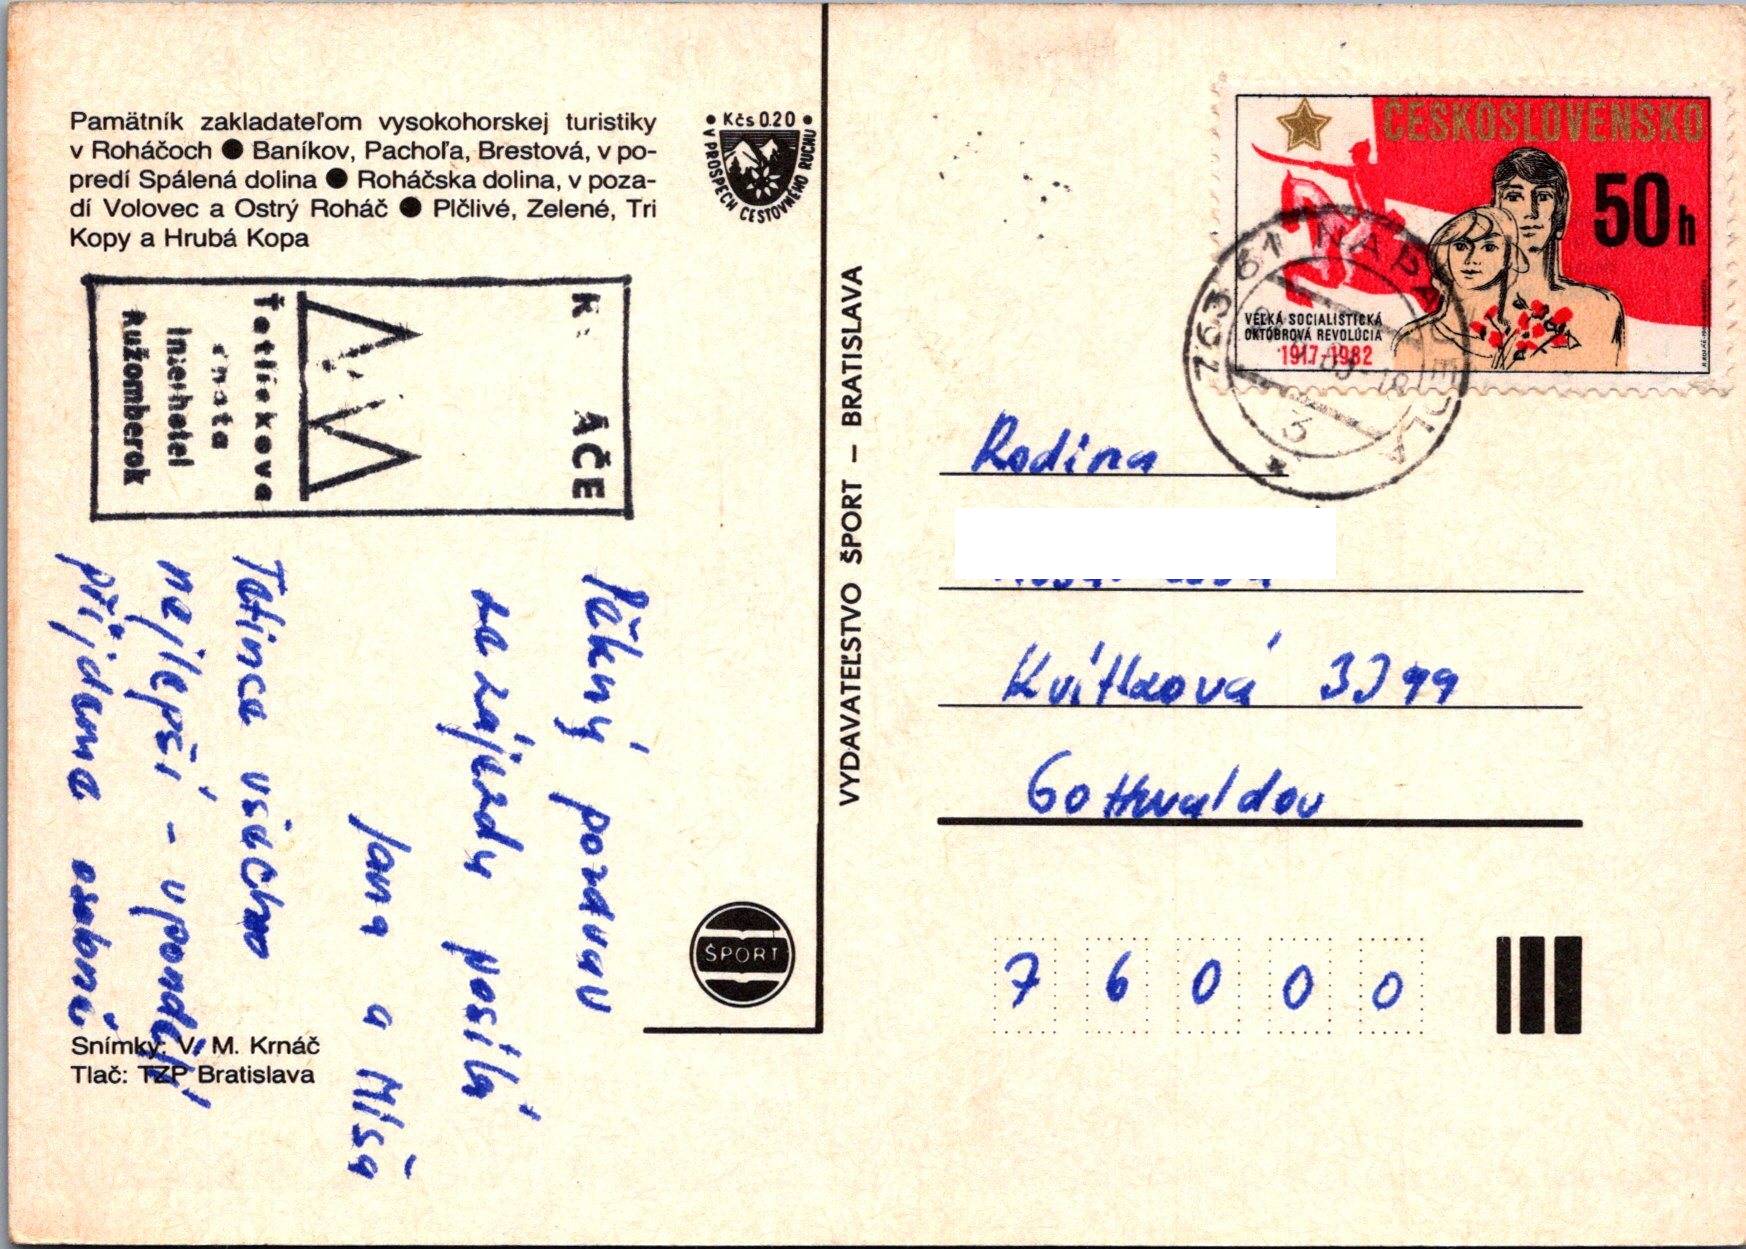 Pamätník zakladateľom vysokohorskej turistiky
v Roháčoch ● Baníkov, Pachoľa, Brestová, v po-
predí Spálená dolina ● Roháčska dolina, v poza-
dí Volovec a Ostrý Roháč ● Plčlivé, Zelené, Tri
Kopy a Hrubá Kopa
• Kčs 0.20 •
V PROSPECH CESTOVNÉHO RUCHU
ÁČE
Ťatliakova
Interhotel
Ružomberok
Pěkný pozdrav
ze zájezdu posílá
Jana a Míša
Tatínce všecho
nejlepší - v pondělí
přijdeme osobně
Snímky: V. M. Krnáč
Tlač: TZP Bratislava
ŠPORT
VYDAVATEĽSTVO ŠPORT — BRATISLAVA
ČESKOSLOVENSKO
50 h
VEĽKÁ SOCIALISTICKÁ
OKTÓBROVÁ REVOLÚCIA
1917-1982
763 61 NAPAJEDLA
3
Rodina
Kvítková 3399
Gottwaldov
76000